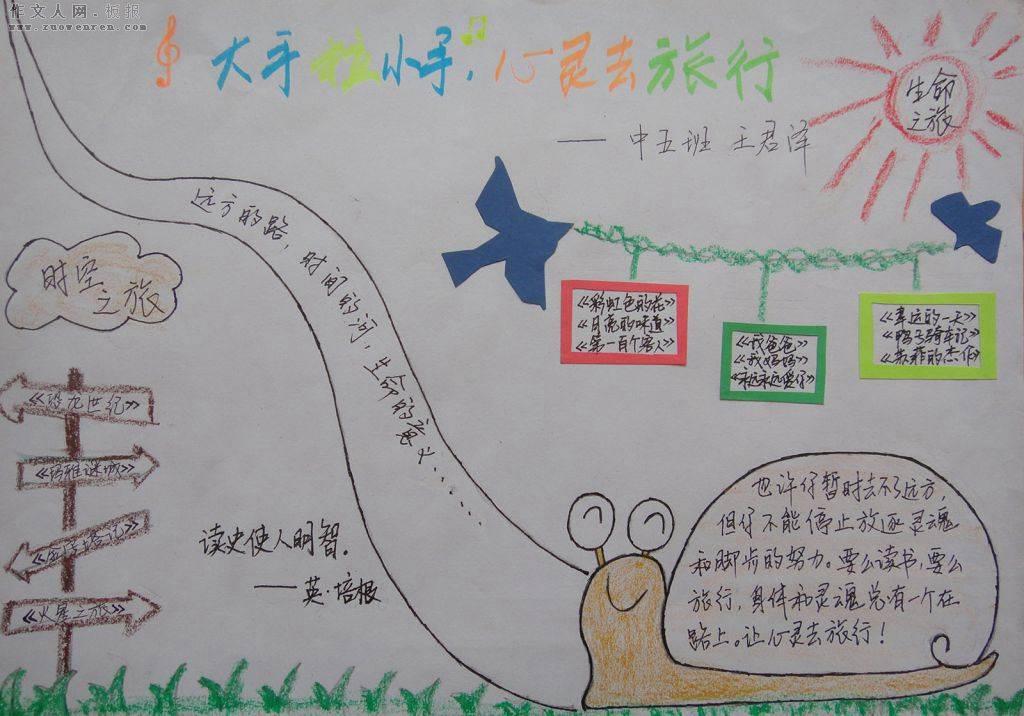 作文人网.板报
www.zuowenren.com
大手拉小手,心灵去旅行
——中五班 王君泽
生命
之旅
远方的路,时间的河,生命的意义......
时空
之旅
《彩虹色的花》
《月亮的味道》
《第一百个客人》
《我爸爸》
《我妈妈》
《永远永远爱你》
《幸运的一天》
《鸭子骑车记》
《苏菲的杰作》
《恐龙世纪》
《玛雅谜城》
《火星之旅》
读史使人明智.
——英·培根
也许你暂时去不了远方,
但你不能停止放逐灵魂
和脚步的努力。要么读书,要么
旅行,身体和灵魂总有一个在
路上。让心灵去旅行!